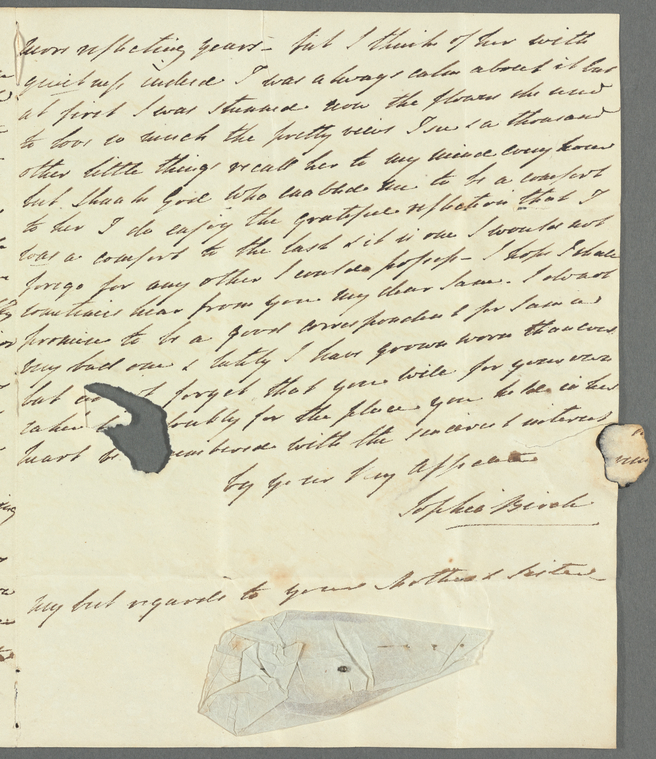 more reflecting years - but I think of her with
quietness indeed I was always calm about it but
at first I was stunned now the flowers she used
to love so much the pretty views I see & a thousand
other little things recall her to my mind every hour
but thank God who enabled me to be a comfort
to her I do enjoy the grateful reflection that I
was a comfort to the last & it is one I would not
forego for any other I could possess - I hope I shall
sometimes hear from you my dear Jane. I do not
promise to be a good correspondent for I am a
very bad one & lately I have grown worse than ever
but forget that you will for your own
sake doubly for the place you held in her
heart be remembered with the sincerest interest
by your very affecate
Sophia
My best regards to your Mother & Sister